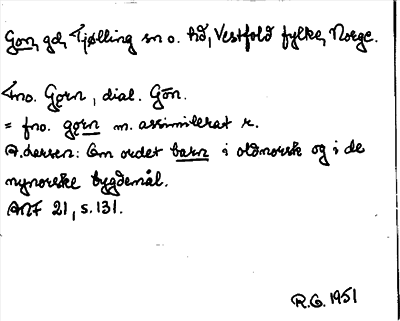 Gon, gd, Tjølling sn o. hd, Vestfold fylke, Norge.
< no. Gorn, dial. Gōn.
= fno. gorn m. assimilerat r.
A. Larsen: Om ordet barn i oldnorsk og i de
nynorske bygdemål.
ANF 21, s. 131.
R.G. 1951